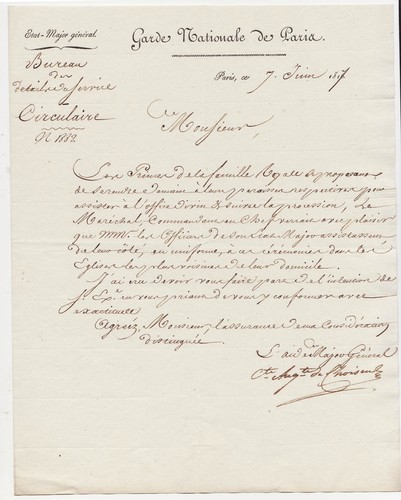 Etat-Major général.
Garde Nationale de Paris.
Bureau
du
détail du Service
Paris, ce 7 Juin 1817
Circulaire
N 1882.
Monsieur,
Les Princes de la famille Royale se proposant
de se rendre demain à leurs paroisses respectives pour
assister à l'office divin & suivre la procession, le
Maréchal, Commandant en Chef verrait avec plaisir
que MM. les Officiers de son Etat-Major assistassent
de leur côté, en uniforme, à ces cérémonies dans les
Eglises les plus voisines de leur domicile.
J'ai cru devoir vous faire part de l'intention de
S. Ex. en vous priant de vous y conformer avec
exactitude.
Agréez, Monsieur, l'assurance de ma Considération
distinguée.
L'aide Major Général
Cte Augte de Choiseul